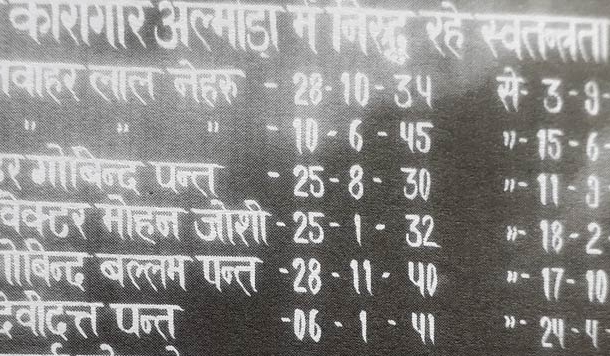 कारागार अल्मोड़ा में निरुद्ध रहे स्वतन्त्रता
वाहर लाल नेहरू - 28-10-34 से- 3-9-
" " " - 10-6-45 "-15-6-
र गोबिन्द पन्त - 25-8-30 "-11-9
विक्टर मोहन जोशी-25-1-32 "-18-2
गोबिन्द बल्लभ पन्त -28-11-40 "-17-10
देवीदत्त पन्त -06-1-41 "-24-4-